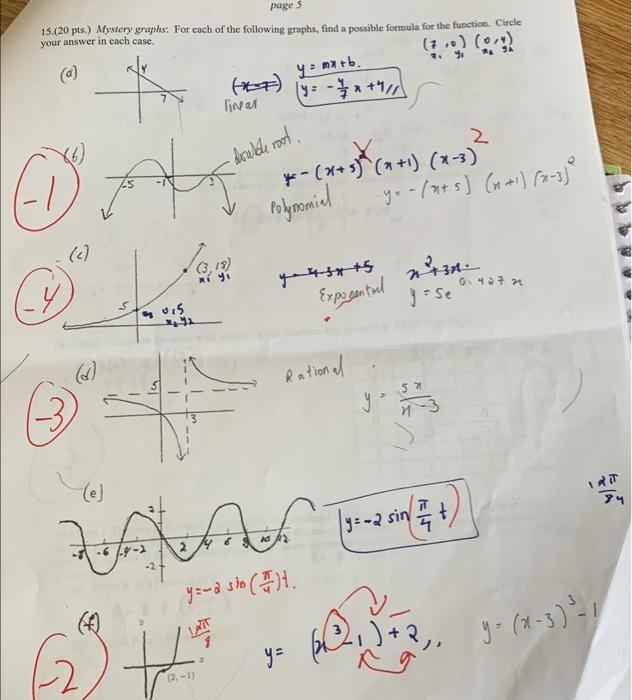 page 5
15.(20 pts.) Mystery graphs: For each of the following graphs, find a possible formula for the function. Circle
your answer in each case.
(7,0) (0,4)
x₁ y₁ x₂ y₂
(a)
4
7
linear
y = mx+b.
y = -4/7 x +4
-1
(b)
-5 -1 3
double root.
y = -(x+5)(x+1)(x-3)²
Polynomial
y = -(x+5)(x+1)(x-3)²
-4
(c)
(3,18)
x₁ y₁
5
0,5
x₂ y₂
Exponential
y = 5e^0.427x
-3
(d)
5
3
Rational
y = 5x/x-3
(e)
2
-8 -6 -4 -2 2 4 6 8 10 12
-2
y=-2 sin(π/4 t)
y=-2 sin(π/4)t.
-2
(f)
(2,-1)
y= (x³-1)+2
y = (x-3)³-1